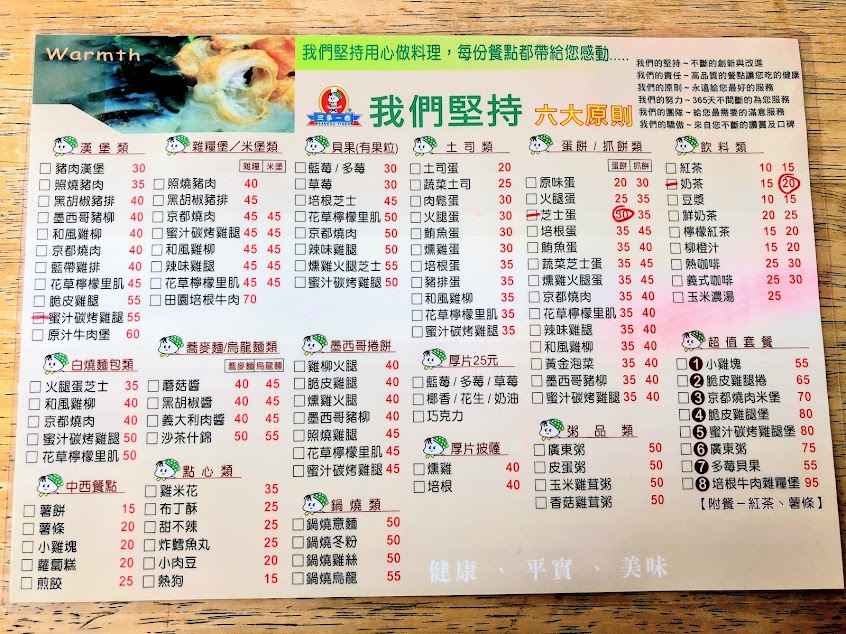 Warmth
我們堅持用心做料理，每份餐點都帶給您感動.....
三多一吉
我們堅持 六大原則
我們的堅持~不斷的創新與改進
我們的責任~高品質的餐點讓您吃的健康
我們的原則~永遠給您最好的服務
我們的努力~365天不間斷的為您服務
我們的團隊~給您最需要的滿意服務
我們的驕傲~來自您不斷的讚賞及口碑
漢堡類
豬肉漢堡 30
照燒豬肉 35
黑胡椒豬排 40
墨西哥豬柳 40
和風雞柳 40
京都燒肉 40
藍帶雞排 40
花草檸檬里肌 45
脆皮雞腿 55
蜜汁碳烤雞腿 55
原汁牛肉堡 60
雜糧堡/米堡類
雜糧 米堡
照燒豬肉 40
黑胡椒豬排 45
京都燒肉 45 45
蜜汁碳烤雞腿 45 45
和風雞柳 45 45
辣味雞腿 45 45
花草檸檬里肌 45 45
田園培根牛肉 70
貝果(有果粒)
藍莓/多莓 30
草莓 30
培根芝士 45
花草檸檬里肌 50
京都燒肉 50
辣味雞腿 50
燻雞火腿芝士 55
蜜汁碳烤雞腿 50
土司類
土司蛋 20
蔬菜土司 25
肉鬆蛋 30
火腿蛋 30
鮪魚蛋 30
燻雞蛋 30
培根蛋 35
豬排蛋 35
和風雞柳 35
花草檸檬里肌 35
蜜汁碳烤雞腿 35
蛋餅/抓餅類
蛋餅 抓餅
原味蛋 20 30
火腿蛋 25 35
芝士蛋 30 35
培根蛋 35 45
鮪魚蛋 35 40
蔬菜芝士蛋 35 45
燻雞火腿蛋 35 45
京都燒肉 35 40
花草檸檬里肌 35 40
辣味雞腿 35 40
和風雞柳 35 40
黃金泡菜 35 40
墨西哥豬柳 35 40
蜜汁碳烤雞腿 35 40
飲料類
紅茶 10 15
奶茶 15 20
豆漿 10 15
鮮奶茶 20 25
檸檬紅茶 15 20
柳橙汁 15 20
熱咖啡 25 30
義式咖啡 25 30
玉米濃湯 25
白燒麵包類
火腿蛋芝士 35
和風雞柳 40
京都燒肉 40
蜜汁碳烤雞腿 50
花草檸檬里肌 50
蕎麥麵/烏龍麵類
蕎麥麵 烏龍麵
蘑菇醬 40 45
黑胡椒醬 40 45
義大利肉醬 40 45
沙茶什錦 50 55
墨西哥捲餅
雞柳火腿 40
脆皮雞腿 40
燻雞火腿 40
墨西哥豬柳 40
照燒雞腿 40
花草檸檬里肌 45
蜜汁碳烤雞腿 45
厚片25元
藍莓/多莓/草莓
椰香/花生/奶油
巧克力
厚片披薩
燻雞 40
培根 40
粥品類
廣東粥 50
皮蛋粥 50
玉米雞茸粥 50
香菇雞茸粥 50
超值套餐
1 小雞塊 55
2 脆皮雞腿捲 65
3 京都燒肉米堡 70
4 脆皮雞腿堡 80
5 蜜汁碳烤雞腿堡 80
6 廣東粥 75
7 多莓貝果 55
8 培根牛肉雜糧堡 95
【附餐－紅茶、薯條】
中西餐點
薯餅 15
薯條 20
小雞塊 20
蘿蔔糕 20
煎餃 25
點心類
雞米花 35
布丁酥 25
甜不辣 25
炸鱈魚丸 25
小肉豆 20
熱狗 15
鍋燒類
鍋燒意麵 50
鍋燒冬粉 50
鍋燒雞絲 50
鍋燒烏龍 55
健康、平實、美味